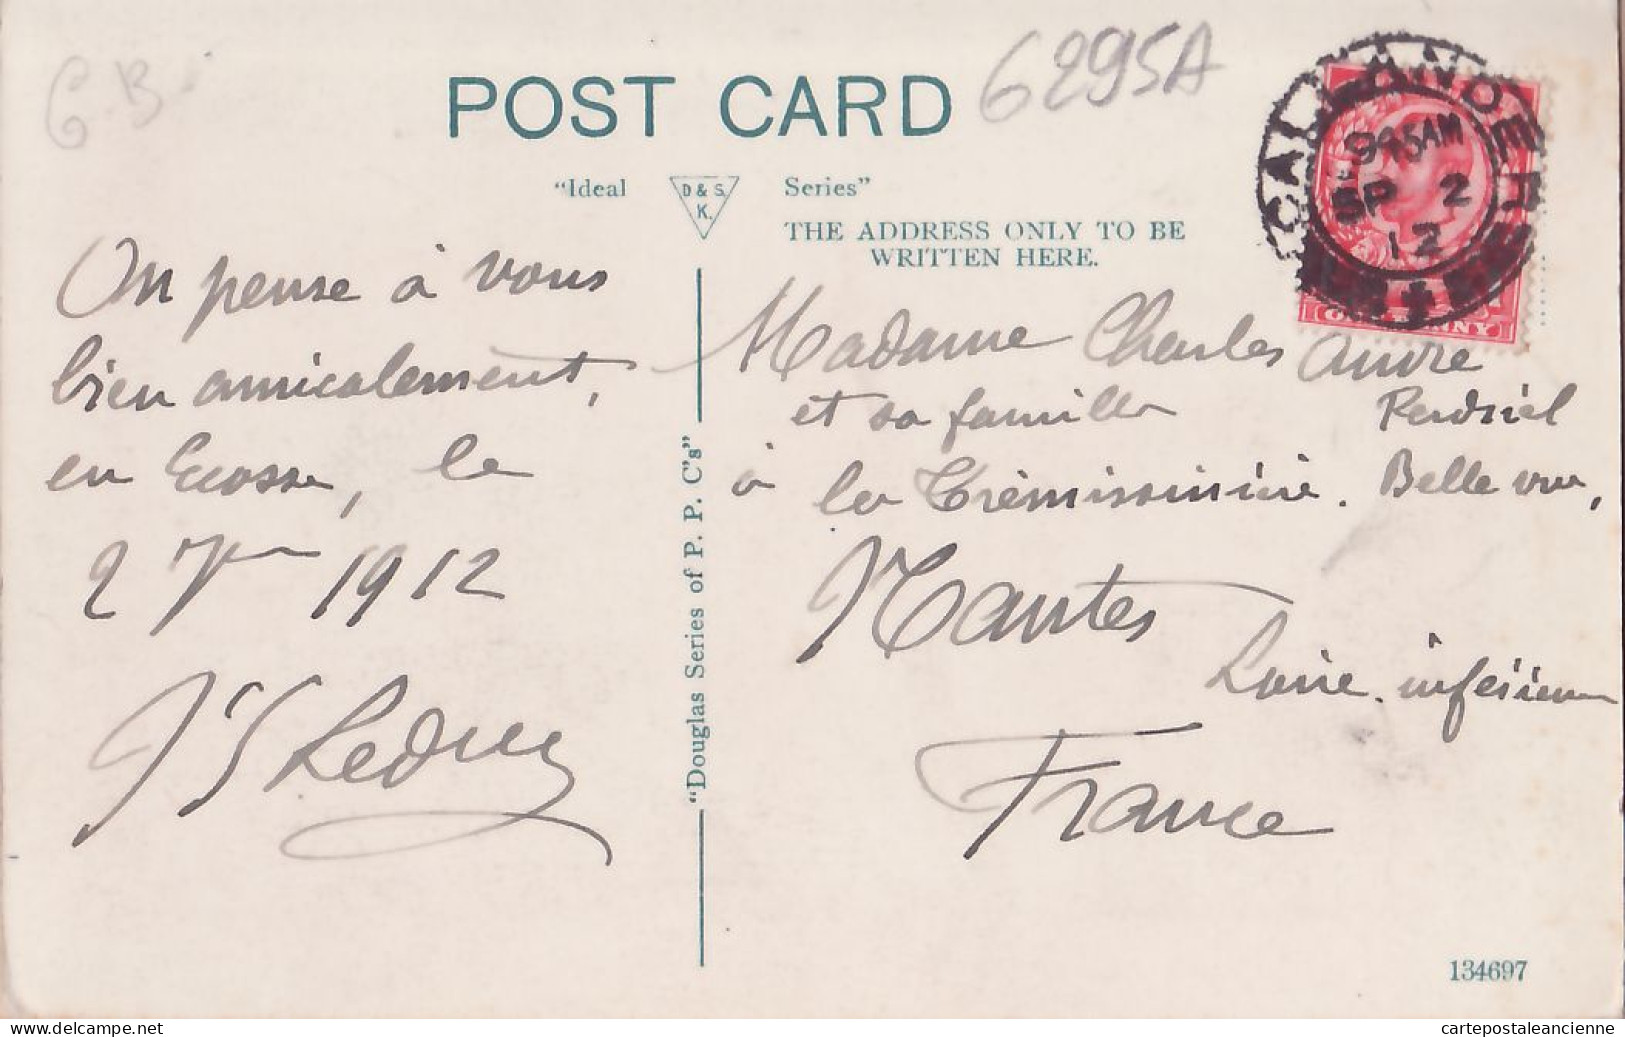 G.B.
6295A
POST CARD
"Ideal D & S. K. Series"
THE ADDRESS ONLY TO BE
WRITTEN HERE.
CALLANDER
9 45AM
SP 2
12
ONE PENNY
On pense à vous
bien amicalement,
en Ecosse, le
2 7bre 1912
Madame Charles André
et sa famille
à la Trémissinière.
Belle vue,
Nantes
Loire inférieure
France
"Douglas Series of P. P. C's"
134697
www.delcampe.net
cartepostaleancienne